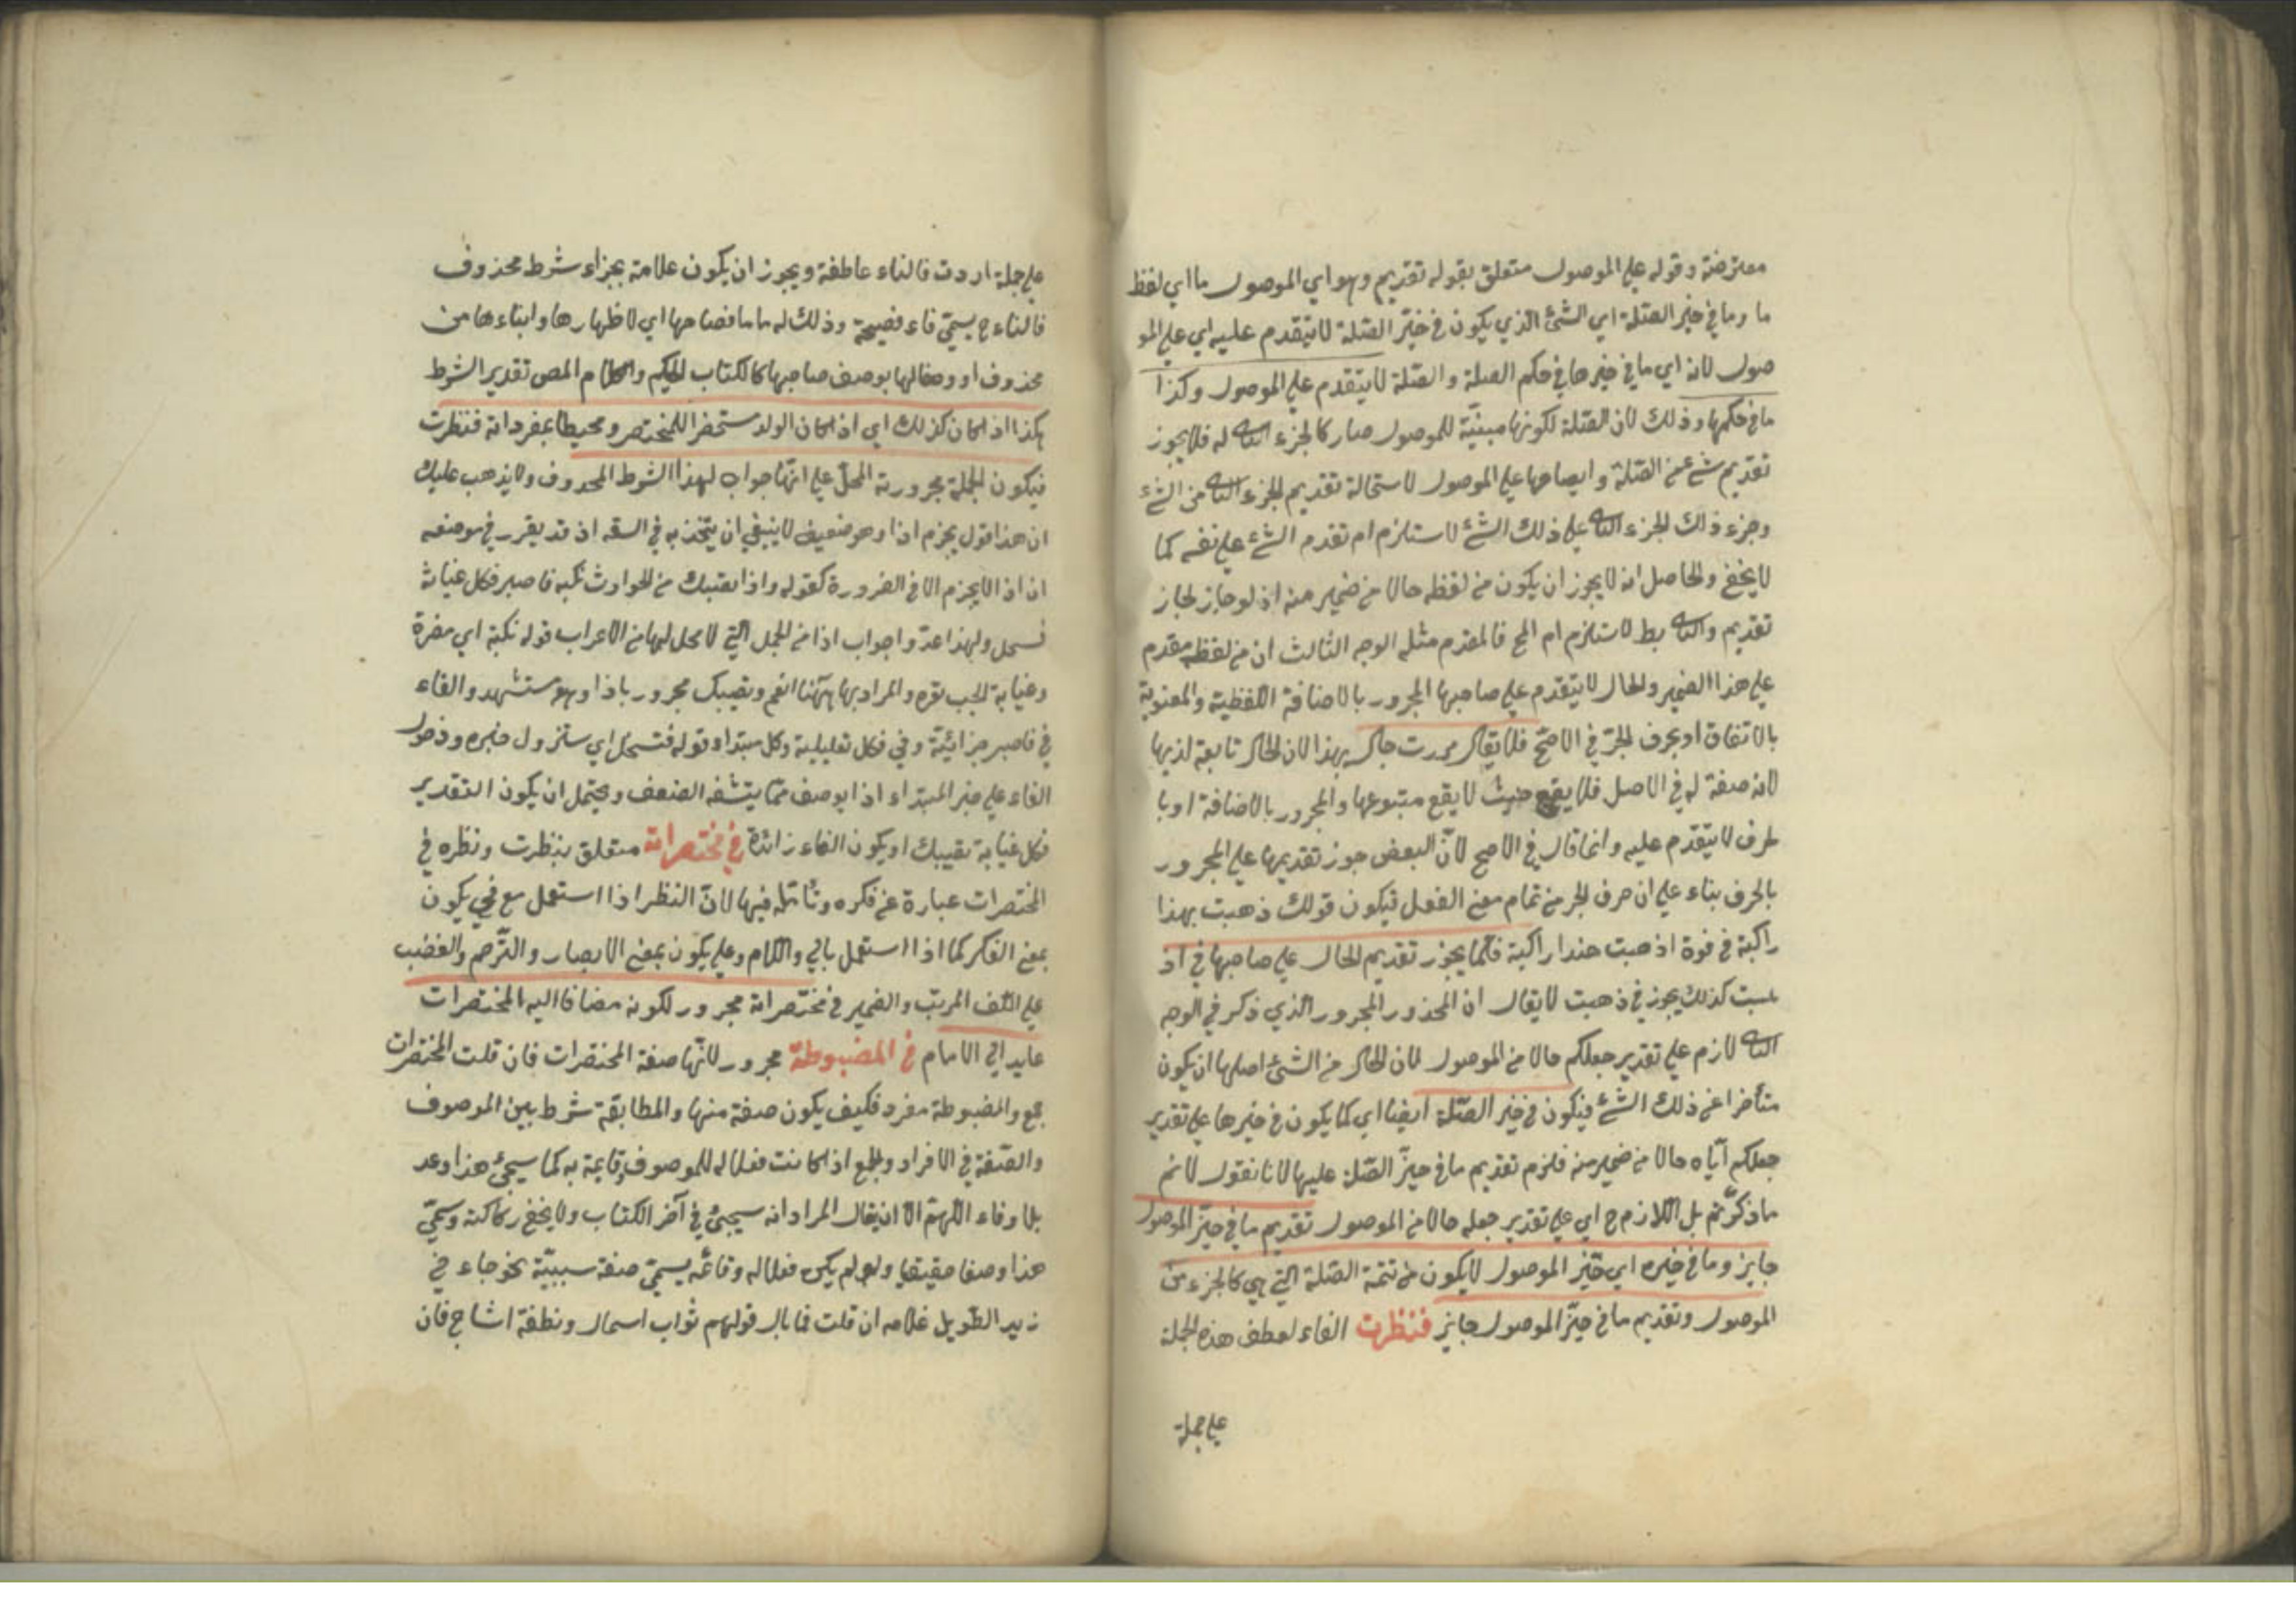 معترضة وقوله على الموصول متعلق بقوله تقديم وهو اي الموصول ما اي لفظ
ما وما في حيز الصلة اي الشئ الذي يكون في حيّز الصّلة لا يتقدم عليه اي على المو
صول لانه اي ما في حيزها في حكم الصلة والصّلة لا يتقدم على الموصول وكذا
ما في حكمها وذلك لان الصّلة لكونها مبنيّة للموصول صار كالجزء الثا له فلا يجوز
تقديم شئ من الصّلة وايضا حها على الموصول لاستحالة تقديم الجزء الثا من الشئ
وجزء ذلك الجزء الثا على ذلك الشئ لاستلزام ام تقدم الشئ على نفسه كما
لا يخفى والحاصل انه لا يجوز ان يكون من لفظه حالا من ضمير منه اذ لو جاز لجاز
تقديم والثا بط لاستلزم ام المح فالمقدم مثله الوجه الثالث ان من لفظه مقدم
على هذا الضمير والحال لا يتقدم على صاحبها المجرور بالاضافة اللفظية والمعنوية
بالاتفاق او بحرف الجرّ في الاصحّ فلا يقال مررت جالسا بهذا لان الحال تابعة لذيها
لانه صفة له في الاصل فلا يقع حيث لا يقع متبوعها والمجرور بالاضافة او با
لحرف لا يتقدّم عليه وانما قال في الاصح لانّ البعض جوز تقديمها على المجرور
بالحرف بناء على ان حرف الجر من تمام معنى الفعل فيكون قولك ذهبت بهذا
راكبة في قوة اذهبت هندا راكبة فكما يجوز تقديم الحال على صاحبها في اذ
هبت كذلك يجوز في ذهبت لا يقال ان المحذور المجرور الذي ذكر في الوجه
الثا لازم على تقدير جعلكم حالا من الموصول لان الحال من الشئ اصلها ان يكون
متأخرا عن ذلك الشئ فيكون في حيز الصّلة ايضا اي كما يكون في حيزها على تقدير
جعلكم ايّاه حالا من ضمير منه فلزم تقديم ما في حيزّ الصّلة عليها لانا نقول لا نم
ما ذكرّتم بل اللازم ح اي على تقدير جعله حالا من الموصول تقديم ما في حيّز الموصول
جايز وما في حيزه اي حيّز الموصول لا يكون من تتمة الصّلة التي هي كالجزء من
الموصول وتقديم ما في حيّز الموصول جايز فنظرت الفاء لعطف هذه الجملة
على جملة
على جملة اردت فالفاء عاطفة ويجوز ان يكون علامة بجزاء شرط محذوف
فالفاء ح يسمّى فاء فصيحة وذلك له ما ما فصاحها اي لاظهارها وابناءها من
محذوف او وصفا لها بوصف صاحبها كالكتاب الحكيم والكلام المص تقدير الشرط
هكذا اذا كان كذلك اي اذا كان الولد مستحضرا للمختصر ومحيطا بمفرداته فنظرت
فيكون الجملة مجرورية المحلّ على انّها جواب لهذا الشرط المحذوف ولا يذهب عليك
ان هذا قول بجزم اذا وهو ضعيف لا ينبغي ان يتخذ به في السعه اذ قد يقرر في موضعه
ان اذا لا يجزم الا في الضرورة كقوله واذا تصبك من الحوادث نكبه فاصبر فكل غيابة
فسحل ولهذا عدّوا جواب اذا من الجمل التي لا محل لها من الاعراب قوله نكبة اي مضرة
وغيابة الجب قعره والمراد بها ههنا الغم وتصبك مجرور باذا وهو مستشهد والفاء
في فاصبر جزائيّة وفي فكل تعليلية وكل مبتداء وقوله فتسحل اي ستزول خبره ودخول
الفاء على خبر المبتداء اذا يوصف ممّا يتشفه الضعف ويحتمل ان يكون التقدير
فكل غيابة تصيبك او يكون الفاء زائدة في مختصراته متعلق بنظرت ونظره في
المختصرات عبارة عن فكره وتأمّله فيها لانّ النظر اذا استعمل مع في يكون
بمعنى الفكر كما اذا استعمل بالى واللام وعلى يكون بمعنى الابصار والتّرحم والغضب
على اللف المرتب والضمير في مختصراته مجرور لكونه مضافا اليه المختصرات
عايد الى الامام في المضبوطة مجرور لانّها صفة المختصرات فان قلت المختصرات
جمع والمضبوطة مفرد فكيف يكون صفة منها والمطابقة شرط بين الموصوف
والصّفة في الافراد والجمع اذا كانت فعلا له للموصوف وقايمة به كما سيجئ هذا وعد
بلا وفاء اللّهمّ الّا ان يقال المراد انه سيجئ في آخر الكتاب ولا يخفى ركاكته وسمّى
هذا وصفا حقيقيا ولو لم يكن فعلا له وقائمه يسمّى صفة سببيّة نحو جاءني
زيد الطّويل غلامه ان قلت فما بال قولهم ثواب اسمال ونطفة امشاج فان